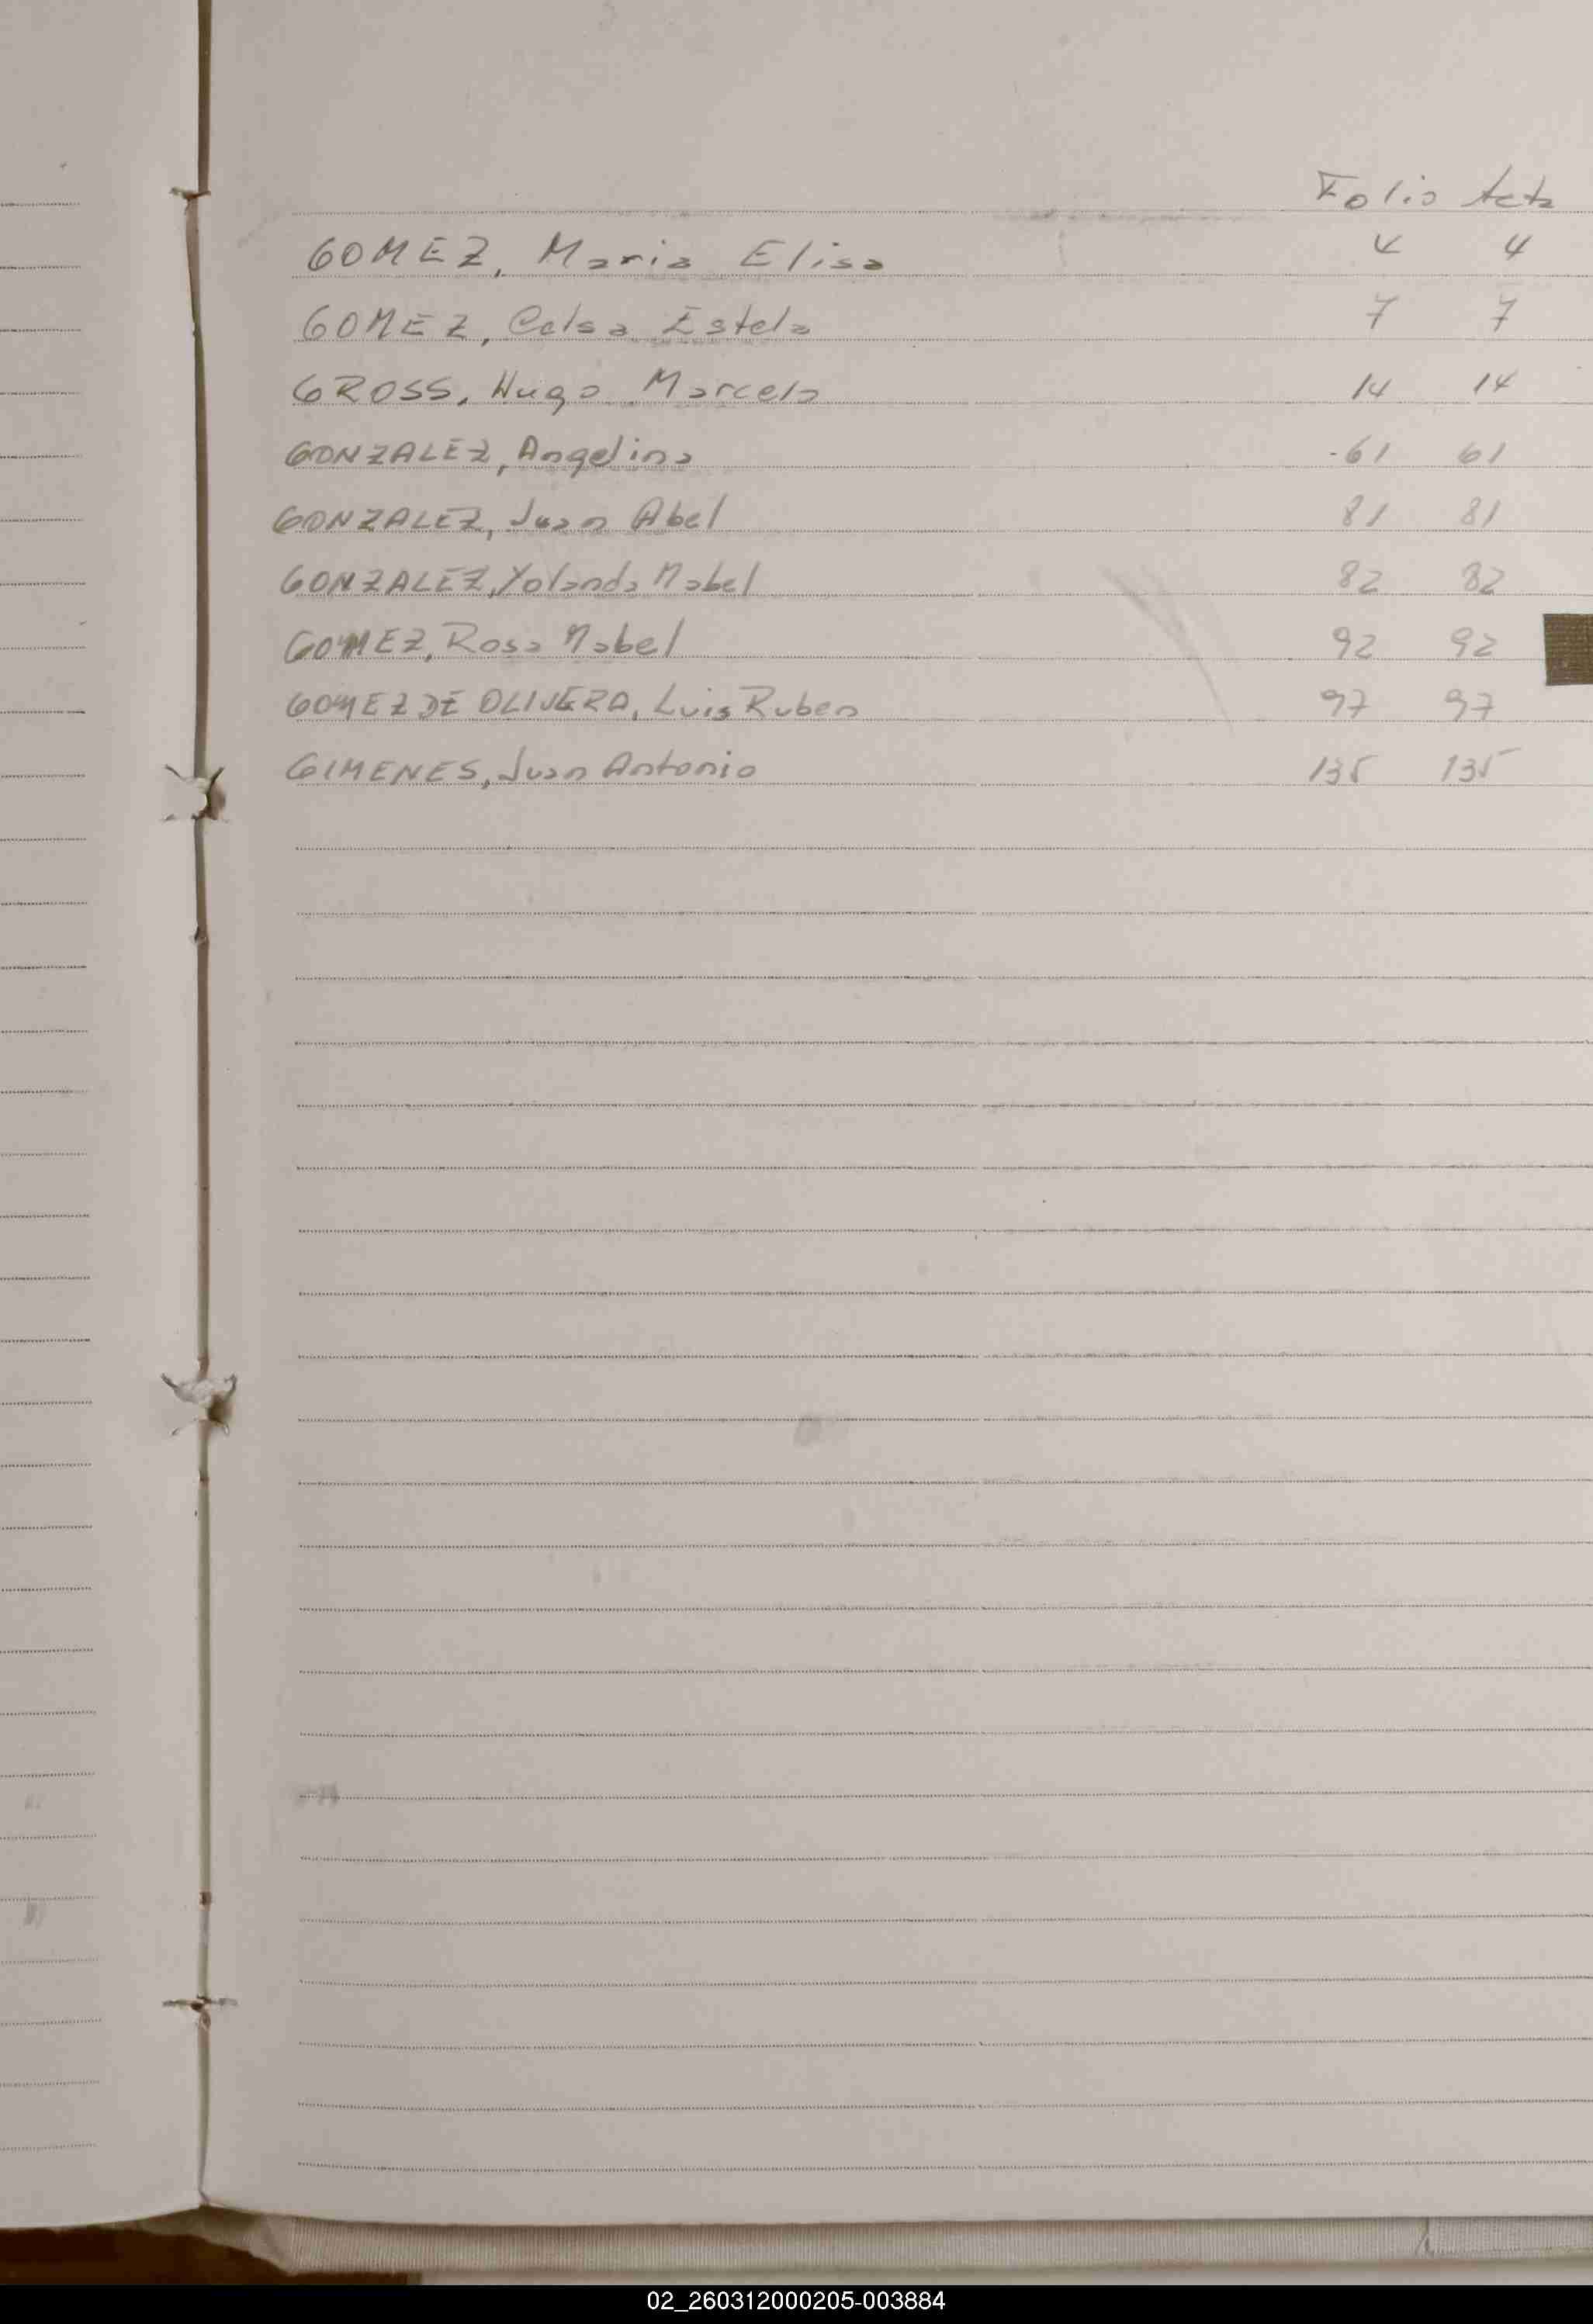 Folio Acta
GOMEZ, Maria Elisa 4 4
GOMEZ, Celsa Estela 7 7
GROSS, Hugo Marcelo 14 14
GONZALEZ, Angelina 61 61
GONZALEZ, Juan Abel 81 81
GONZALEZ, Yolanda Mabel 82 82
GOMEZ, Rosa Mabel 92 92
GOMEZ DE OLIVERA, Luis Ruben 97 97
GIMENES, Juan Antonio 135 135
02_260312000205-003884